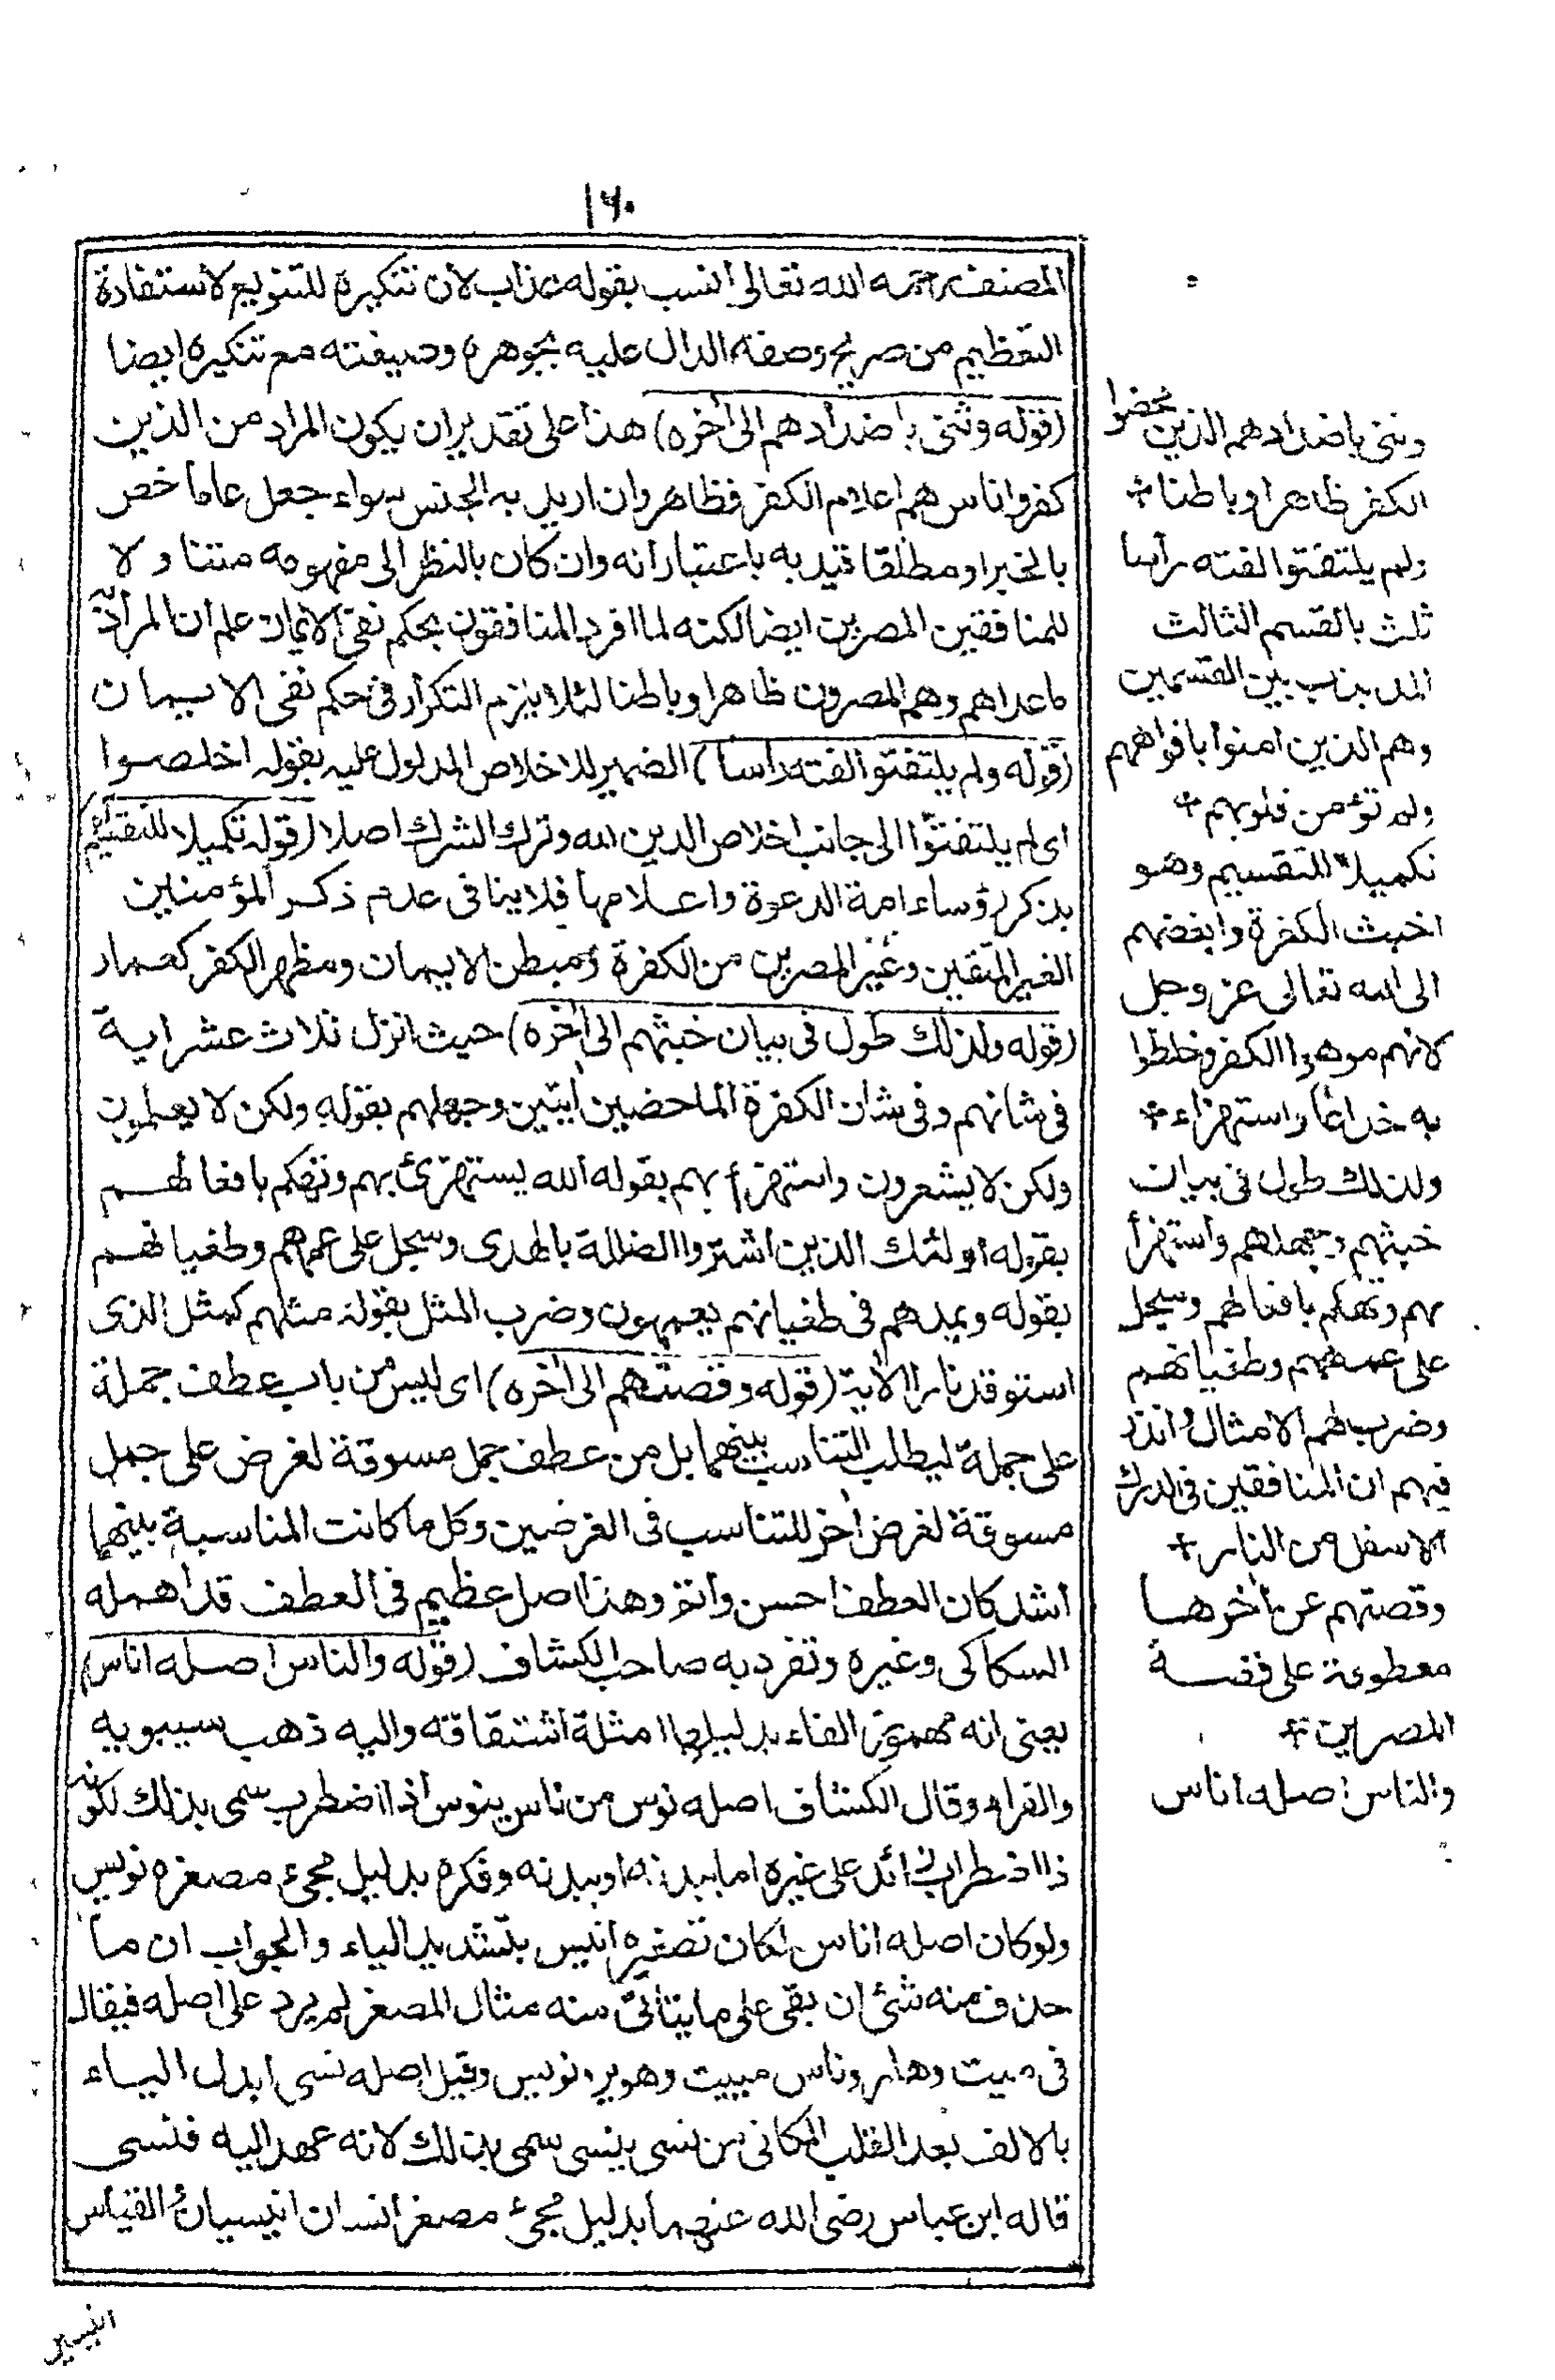 ١٦٠
المصنف رحمه الله تعالى انسب بقوله عذاب لان تنكيره للتنويع لاستفادة
التعظيم من صريح وصفه الدال عليه بجوهره وصيغته مع تنكيره ايضا
(قوله وثنى باضدادهم الى اخره) هذا على تقدير ان يكون المراد من الذين
كفروا ناس هم اعلام الكفر فظاهر وان اريد به الجنس سواء جعل عاما خص
بالخبر او مطلقا قيد به باعتبار انه وان كان بالنظر الى مفهومه متناولا
للمنافقين المصرين ايضا لكنه لما افرد المنافقون بحكم نفى الايمان علم ان المراد به
ماعداهم وهم المصرون ظاهرا وباطنا لئلا يلزم التكرار فى حكم نفى الايمان
(قوله ولم يلتفتوا لفته راسا) الضمير للاخلاص المدلول عليه بقوله اخلصوا
اى لم يلتفتوا الى جانب اخلاص الدين لله وترك الشرك اصلا (قوله تكميلا للتقسيم)
بذكر رؤساء امة الدعوة واعلامها فلا ينافى عدم ذكر المؤمنين
الغير المتقين وغير المصرين من الكفرة ومبطن الايمان ومظهر الكفر كعمار
(قوله ولذلك طول فى بيان خبثهم الى اخره) حيث انزل ثلاث عشر اية
فى شانهم وفى شان الكفرة الماحضين ايتين وجهلهم بقوله ولكن لا يعلمون
ولكن لا يشعرون واستهزأ بهم بقوله الله يستهزئ بهم وتهكم بافعالهم
بقوله اولئك الذين اشتروا الضللة بالهدى وسجل على عمههم وطغيانهم
بقوله ويمدهم فى طغيانهم يعمهون وضرب المثل بقوله مثلهم كمثل الذى
استوقد نارا الاية (قوله وقصتهم الى اخره) اى ليس من باب عطف جملة
على جملة ليطلب التناسب بينهما بل من عطف جمل مسوقة لغرض على جمل
مسوقة لغرض اخر للتناسب فى الغرضين وكل ما كانت المناسبة بينهما
اشد كان العطف احسن واتم وهذا اصل عظيم فى العطف قد اهمله
السكاكى وغيره وتفرد به صاحب الكشاف (قوله والناس اصله اناس)
يعنى انه مهموز الفاء بدليل امثلة اشتقاقته واليه ذهب سيبويه
والفراء وقال الكشاف اصله نوس من ناس ينوس اذا اضطرب سمى بذلك لكونه
ذا اضطراب زائد على غيره اما ببدنه او ببدنه وفكره بدليل مجئ مصغره نويس
ولو كان اصله اناس لكان تصغيره انيس بتشديد الياء والجواب ان ما
حذف منه شئ ان بقى على ما يتاتى منه مثال المصغر لم يرد على اصله فيقال
فى ميت وهار وناس مييت وهوير ونويس وقيل اصله نسى ابدل الياء
بالالف بعد القلب المكانى من نسى ينسى سمى بذلك لانه عهد اليه فنسى
قاله ابن عباس رضى الله عنهما بدليل مجئ مصغر انسان انيسيان والقياس
وثنى باضدادهم الذين محضوا
الكفر ظاهرا وباطنا +
ولم يلتفتوا لفته رأسا
ثلث بالقسم الثالث
المذبذب بين القسمين
وهم الذين امنوا بافواههم
ولم تؤمن قلوبهم +
تكميلا للتقسيم وهو
اخبث الكفرة وابغضهم
الى الله تعالى عز وجل
لانهم موهوا الكفر وخلطوا
به خداعا واستهزاء +
ولذلك طول فى بيان
خبثهم وجهلهم واستهزأ
بهم وتهكم بافعالهم وسجل
على عمههم وطغيانهم
وضرب لهم الامثال وانزل
فيهم ان المنافقين فى الدرك
الاسفل من النار +
وقصتهم عن اخرها
معطوفة على قصة
المصرين +
والناس اصله اناس